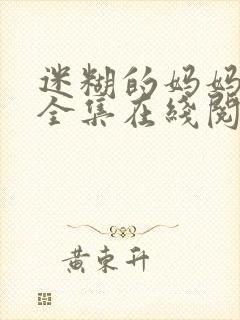 迷糊的妈妈
全集在线阅
黄东升